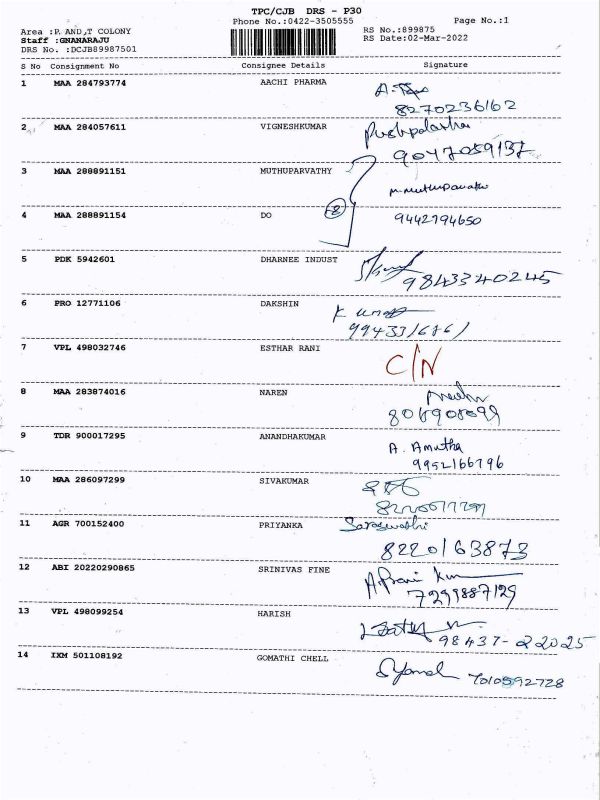 TPC/CJB DRS - P30
Phone No.:0422-3505555 Page No.:1
Area :P. AND,T COLONY RS No.:899875
Staff :GNANARAJU RS Date:02-Mar-2022
DRS No. :DCJB89987501
S No Consignment No Consignee Details Signature
1 MAA 284793774 AACHI PHARMA
8270236162
2 MAA 284057611 VIGNESHKUMAR Pushpalatha
9047059137
3 MAA 288891151 MUTHUPARVATHY M.Muthuparvathy
4 MAA 288891154 DO 2 9442794650
5 PDK 5942601 DHARNEE INDUST 9843340245
6 PRO 12771106 DAKSHIN K
7 VPL 498032746 ESTHAR RANI C/N
8 MAA 283874016 NAREN
9 TDR 900017295 ANANDHAKUMAR A. Amutha
9952166796
10 MAA 286097299 SIVAKUMAR
11 AGR 700152400 PRIYANKA Saraswathi
8220163873
12 ABI 20220290865 SRINIVAS FINE
7299887129
13 VPL 498099254 HARISH
98437-22025
14 IXM 501108192 GOMATHI CHELL 7010592728